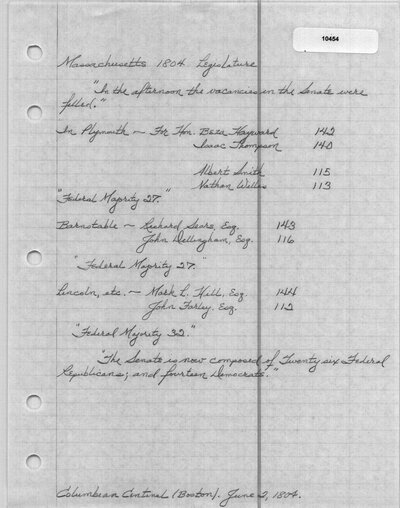 10454
Massachusetts 1804 Legislature
"In the afternoon the vacancies in the Senate were
filled."
In Plymouth — For Hon. Beza Hayward 142
Isaac Thompson 140
Albert Smith 115
Nathan Willis 113
"Federal Majority 27."
Barnstable — Richard Sears, Esq. 143
John Dellingham, Esq. 116
"Federal Majority 27."
Lincoln, etc. — Mark L. Hill, Esq. 144
John Farley, Esq. 112
"Federal Majority 32."
"The Senate is now composed of Twenty six Federal
Republicans; and fourteen Democrats."
Columbian Centinel (Boston). June 2, 1804.